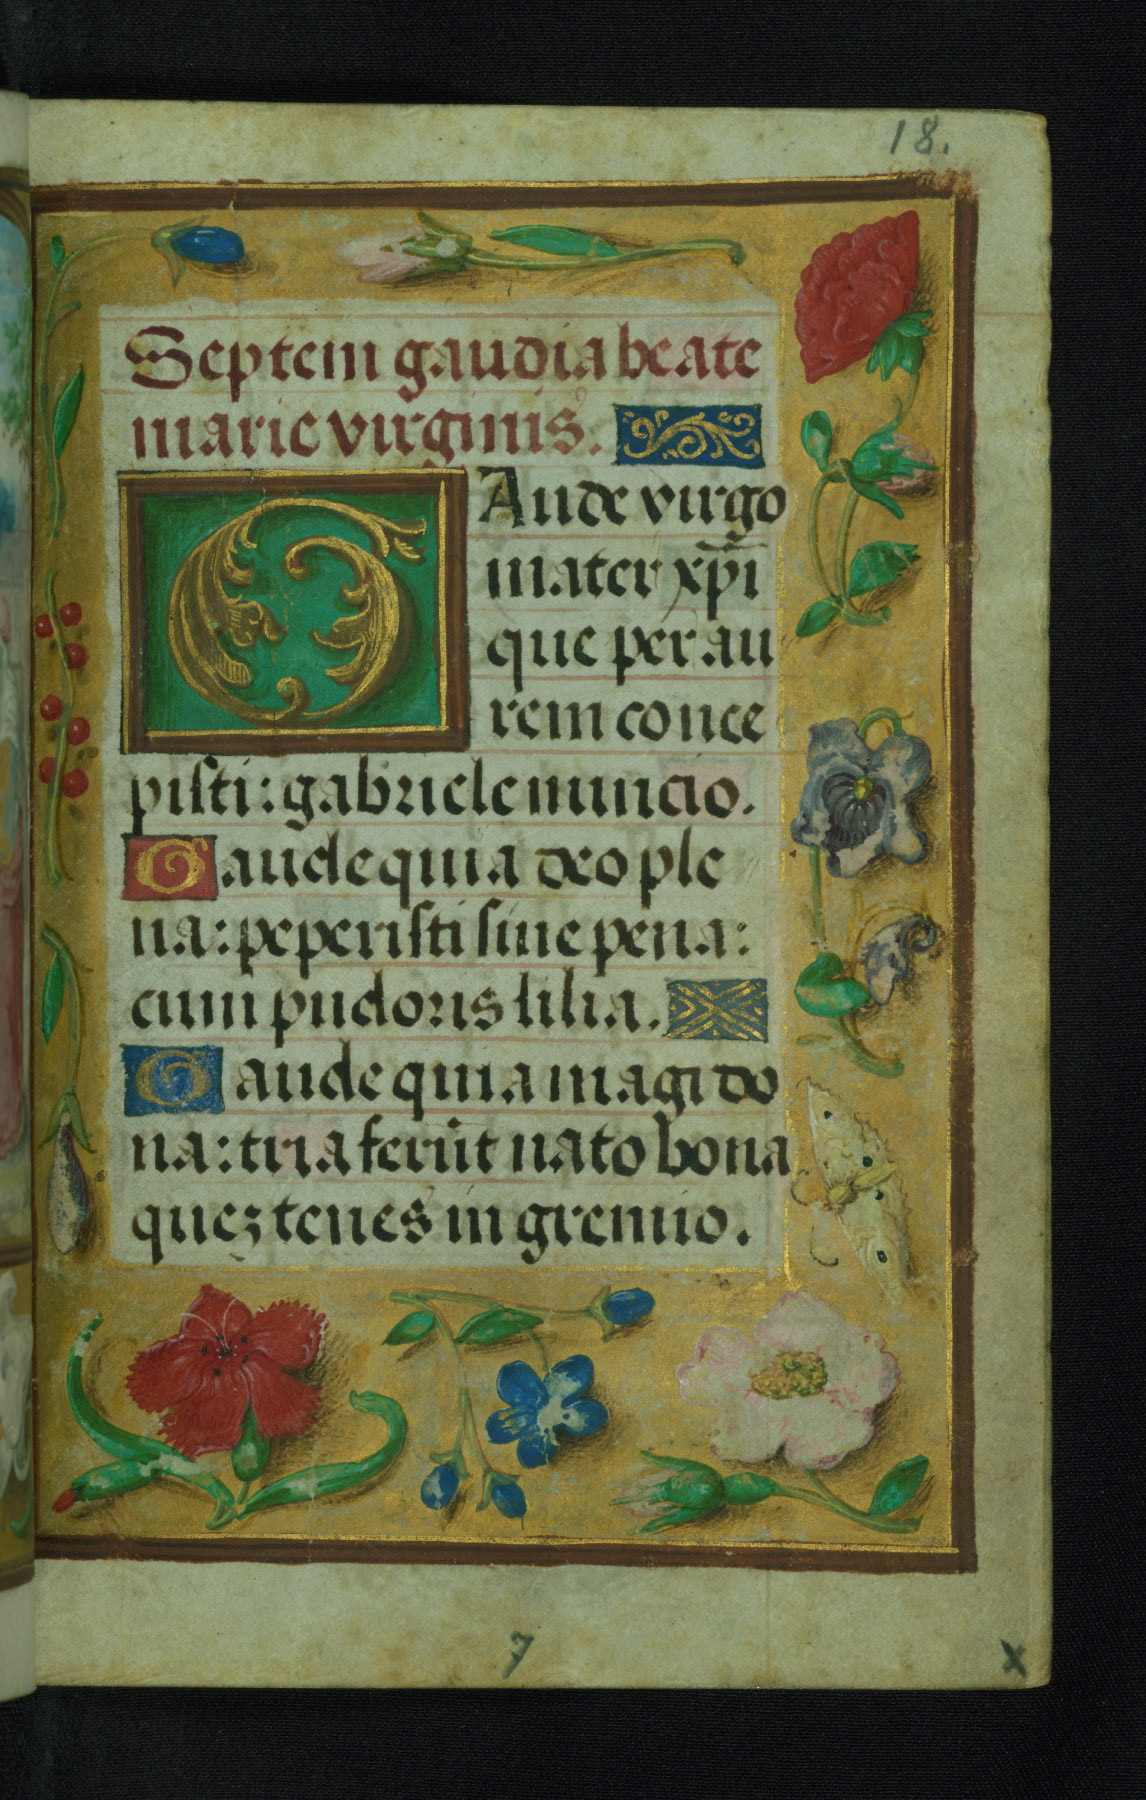 18.
Septem gaudia beate
marie virginis.
GAude virgo
mater xp̄i
que per au
rem conce
pisti: gabriele nuncio.
Gaude quia deo ple
na: peperisti sine pena:
cum pudoris lilia.
Gaude quia magi do
na: tria ferūt nato bona
quez tenes in gremio.
7
x